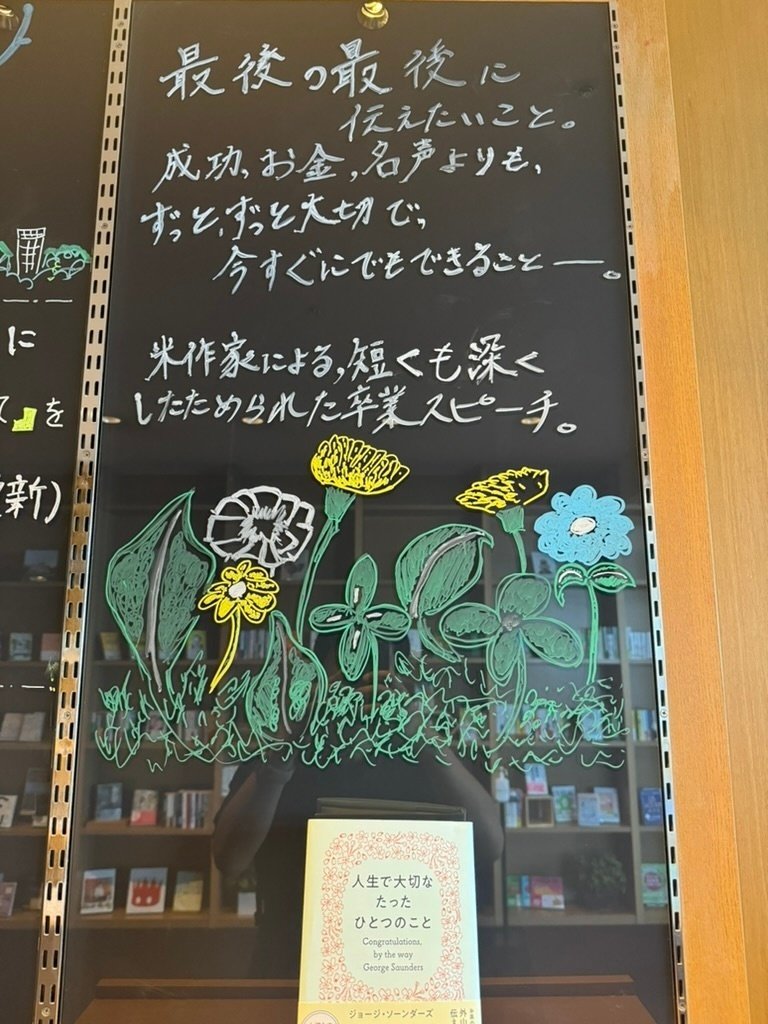 最後の最後に
伝えたいこと。
成功、お金、名声よりも、
ずっと、ずっと大切で、
今すぐにでもできること―。
米作家による、短くも深く
したためられた卒業スピーチ。
に
ス』を
新)
人生で大切な
たった
ひとつのこと
Congratulations,
by the way
George Saunders
ジョージ・ソーンダーズ